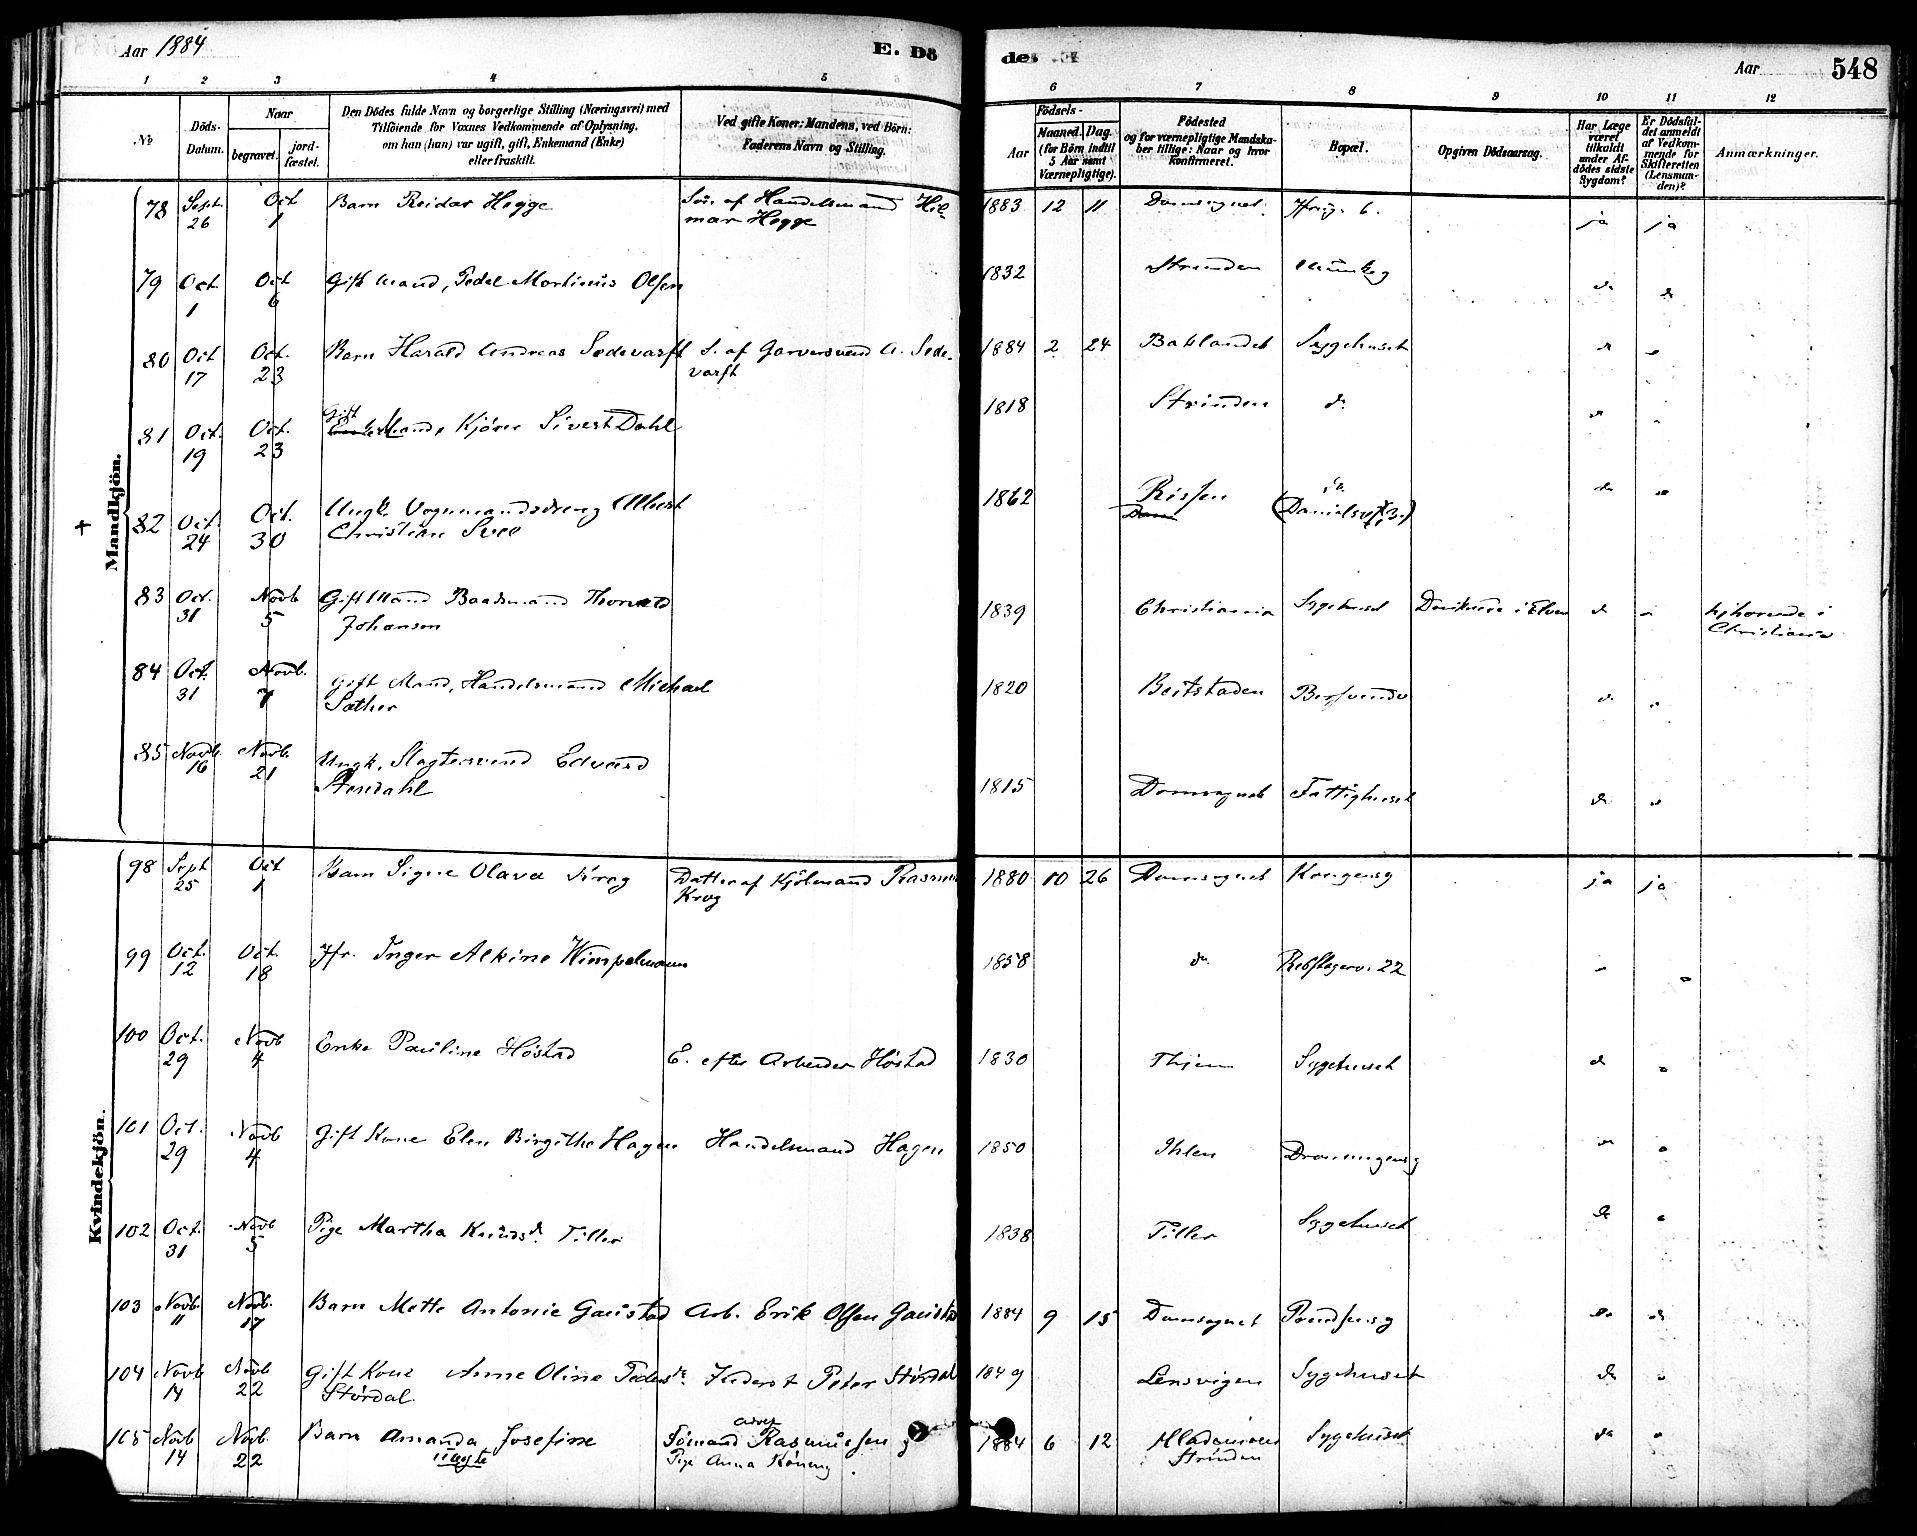 Aar 1884
E. Dö
des E.
Aar
548
1 2 3 4 5 6 7 8 9 10 11 12
No
Döds-Datum.
Naar
begravet.
jord-fæstet.
Den Dödes fulde Navn og borgerlige Stilling (Næringsvei) med
Tilföiende for Voxnes Vedkommende af Oplysning,
om han (hun) var ugift, gift, Enkemand (Enke)
eller fraskilt.
Ved gifte Koner: Mandens, ved Börn:
Faderens Navn og Stilling.
Födsels-
Aar
Maaned. Dag.
(for Börn indtil
5 Aar samt
Værnepligtige).
Födested
og for værnepligtige Mandska-
ber tillige: Naar og hvor
Konfirmeret.
Bopæl.
Opgiven Dödsaarsag.
Har Læge
været
tilkaldt
under Af-
dödes sidste
Sygdom?
Er Dödsfal-
det anmeldt
af Vedkom-
mende for
Skifteretten
(Lensman-
den)?
Anmærkninger.
Mandkjön.
78 Sept. 26 Oct 1 Barn Reidar Hegge Sön. af Handelsmand Hil-
mar Hegge 1883 12 11 Domsognet ja ja
79 Oct 1 Oct 6 Gift Mand, Pedel Martinus Olsen 1832 Strinden Munkeg do
80 Oct 17 Oct. 23 Barn Harald Andreas Sedevarft S. af Garversvend A. Sede-
varft 1884 2 24 Baklandet Sygehuset
81 Oct. 19 Oct. 23 Gift Mand, Kjörer Sivert Dahl 1818 Strinden do
+ 82 Oct. 24 Oct. 30 Ungk. Vognmandsdreng Albert
Christian Sved 1862 Rissen do
(Danielsv. 3.)
83 Oct. 31 Novb 5 Gift Mand Baadsmand Thorvald
Johansen 1839 Christiania Sygehuset Druknede i Elven do hjhörende i
Christiania
84 Oct. 31 Novb. 7 Gift Mand, Handelsmand Michael
Sæther 1820 Beitstaden
85 Novb. 16 Novb. 21 Ungk. Slagtersvend Edvard
Stendahl 1815 Domsognet Fattighuset do
Kvindekjön.
98 Sept 25 Oct 1 Barn Signe Olava Krog Datter af Kjölmand Rasmus
Krog 1880 10 26 Domsognet Kongensg ja ja
99 Oct. 12 Oct. 18 Jfr. Inger Alkine Wimpelmann 1858 do Rebslagerv. 22
100 Oct. 29 Novb 4 Enke Pauline Höstad E. efter Arbeider Höstad 1830 Sygehuset do
101 Oct. 29 Novb 4 Gift Kone Elen Birgitha Hagen Handelsmand Hagen 1850 Ihlen Dronningensg
102 Oct. 31 Novb 5 Pige Martha Knudsd. Tiller 1838 Tiller Sygehuset do
103 Novb. 11 Novb. 17 Barn Mette Antonie Gaustad Arb. Erik Olsen Gaustad 1884 9 15 Domsognet do do
104 Novb 14 Novb 22 Gift Kone Anne Oline Pedersdr.
Stördal Inderst Peter Stördal 1849 Lensvigen Sygehuset do
105 Novb 14 Novb. 22 Barn Amanda Josefine
uægte Sömand Rasmussen og
Pige Anna 1884 6 12 Hlademoen
Strinden Sygehuset do